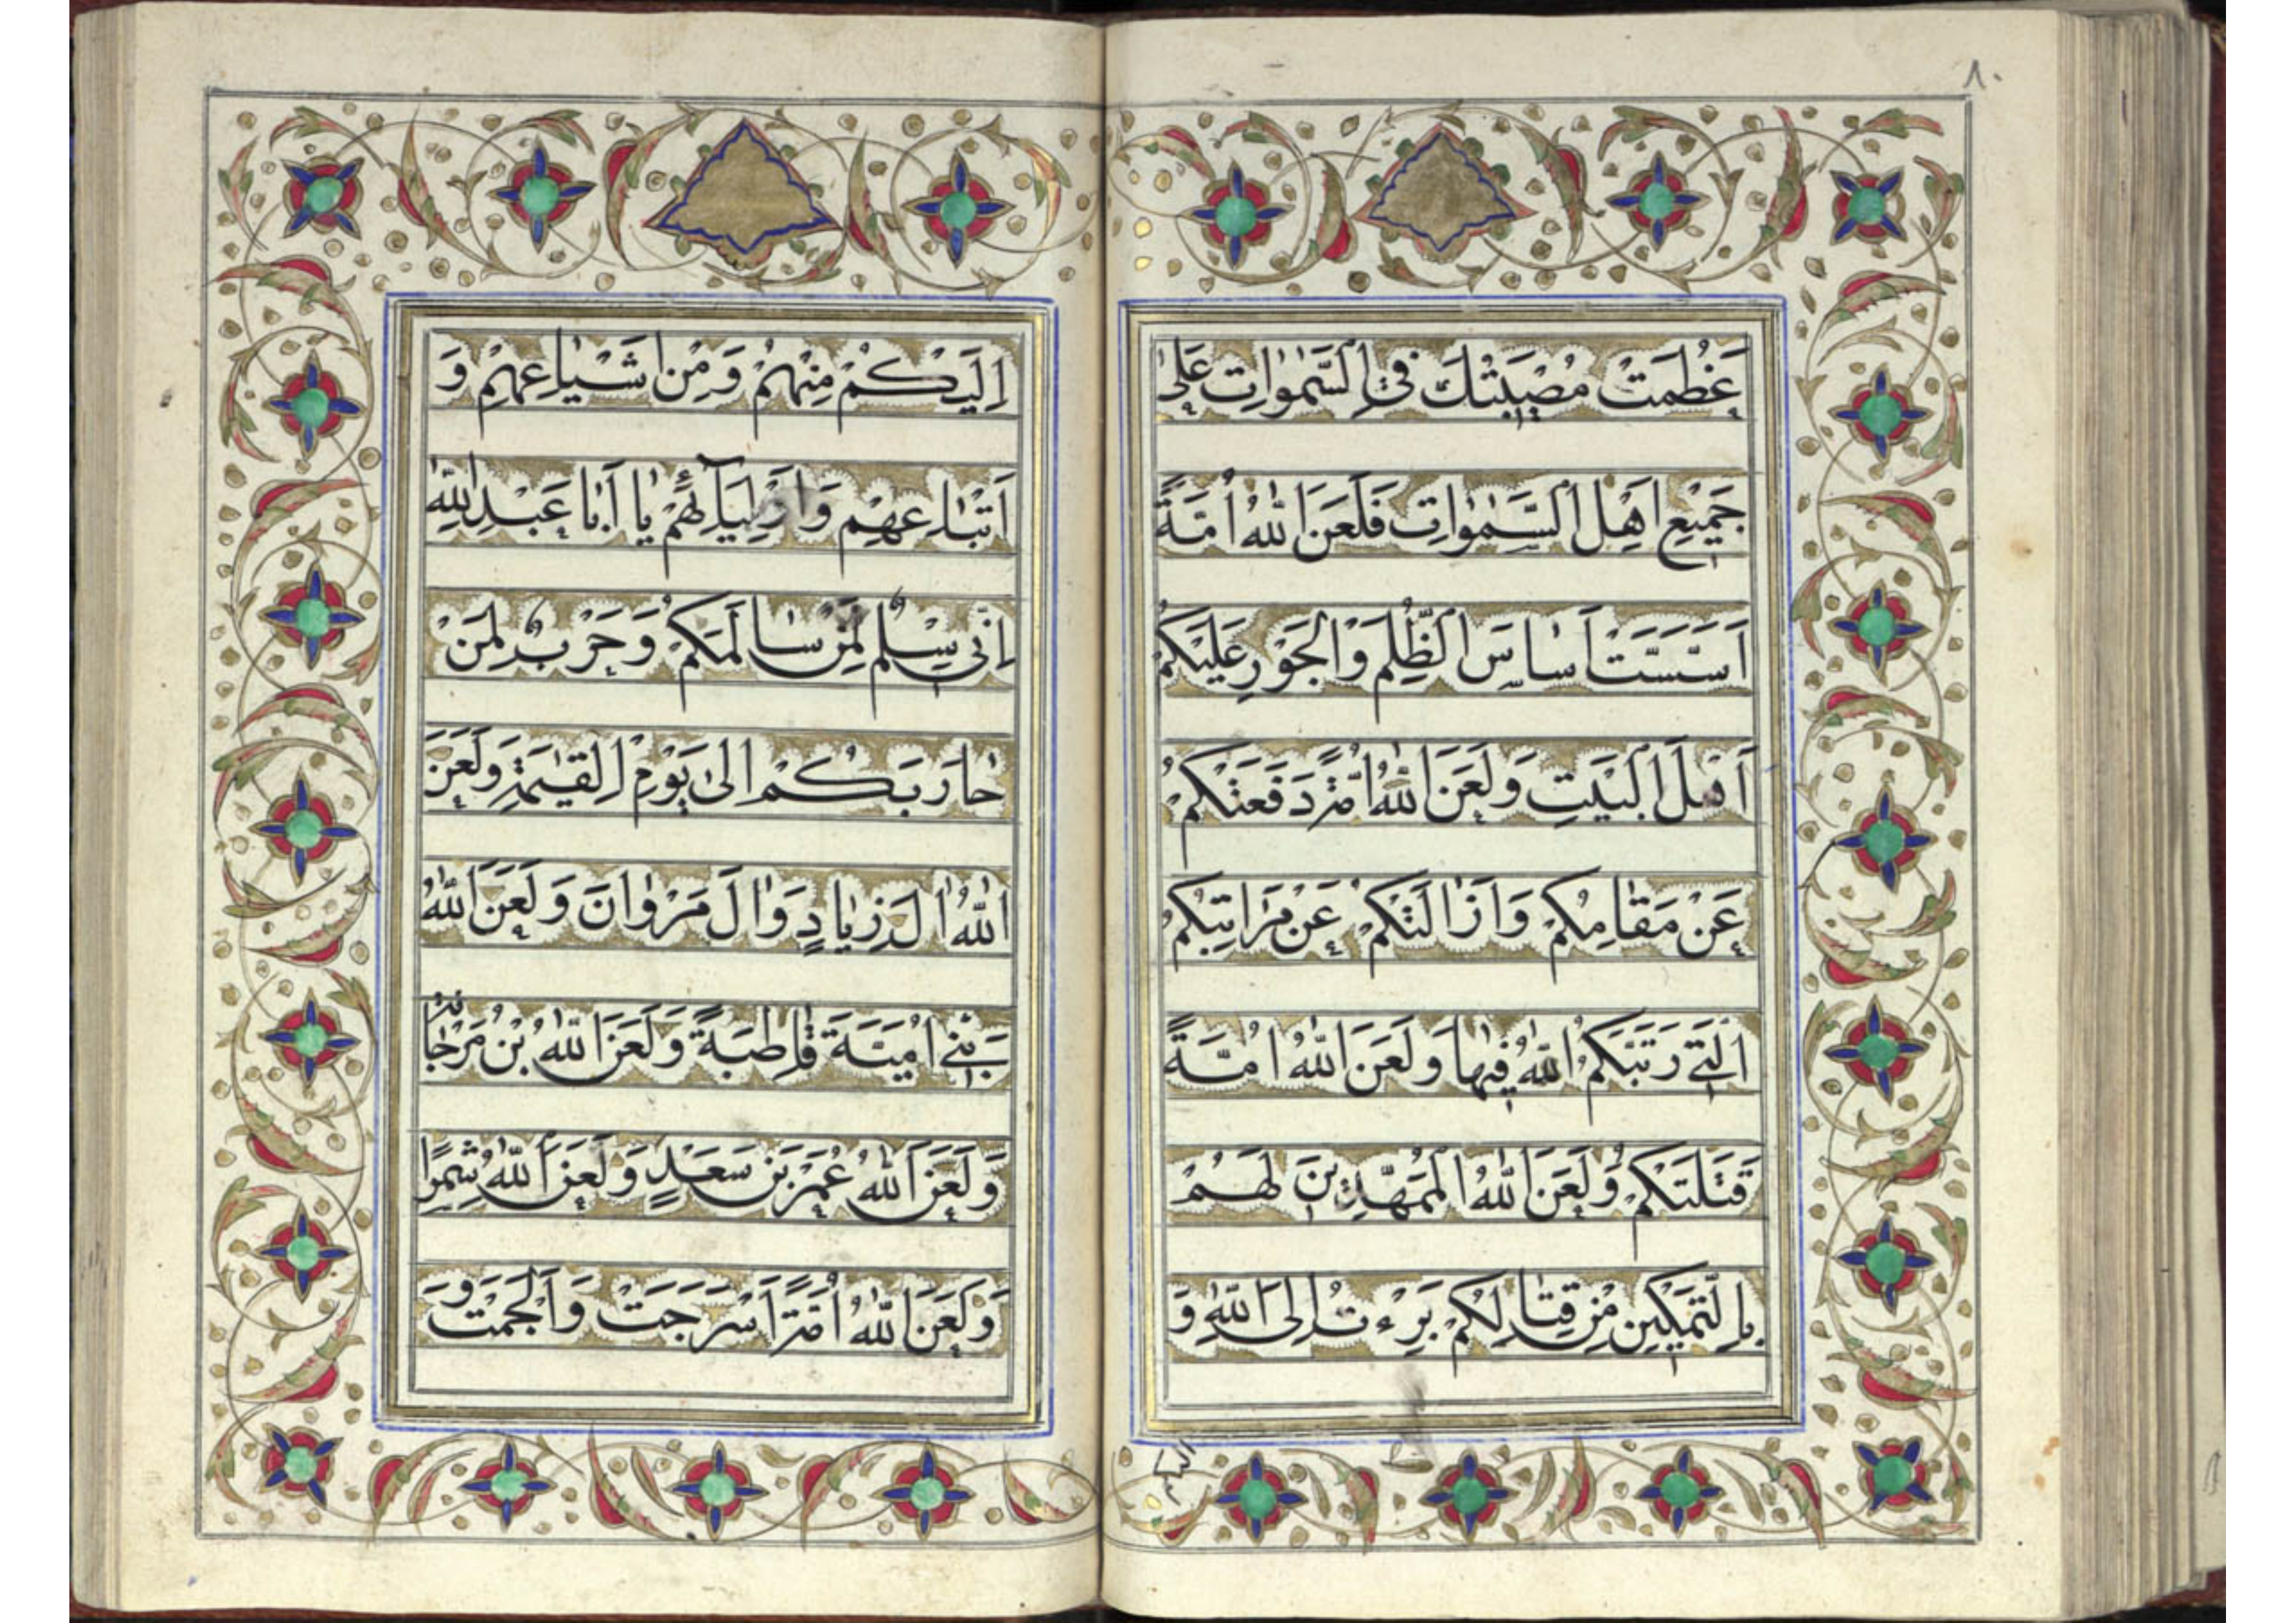 ٨٠
عَظُمَتْ مُصِيبَتُكَ فِي السَّمٰوٰاتِ عَلىٰ
جَمِيْعِ اَهْلِ السَّمٰوٰاتِ فَلَعَنَ اللّٰهُ اُمَّةً
اَسَّسَتْ اَسٰاسَ الظُّلْمِ وَالْجَوْرِ عَلَيْكُمْ
اَهْلَ الْبَيْتِ وَلَعَنَ اللّٰهُ اُمَّةً دَفَعَتْكُمْ
عَنْ مَقٰامِكُمْ وَاَزٰالَتْكُمْ عَنْ مَرٰاتِبِكُمُ
الَّتِي رَتَّبَكُمُ اللّٰهُ فِيهٰا وَلَعَنَ اللّٰهُ اُمَّةً
قَتَلَتْكُمْ وَلَعَنَ اللّٰهُ الْمُمَهِّدِينَ لَهُمْ
بِالتَّمْكِينِ مِنْ قِتٰالِكُمْ بَرِءْتُ اِلَى اللّٰهِ وَ
اليكم
اِلَيْكُمْ مِنْهُمْ وَمِنْ اَشْيٰاعِهِمْ وَ
اَتْبٰاعِهِمْ وَاَوْلِيٰآئِهِمْ يٰا اَبٰا عَبْدِاللّٰهِ
اِنِّي سِلْمٌ لِمَنْ سٰالَمَكُمْ وَحَرْبٌ لِمَنْ
حٰارَبَكُمْ اِلىٰ يَوْمِ الْقِيٰمَةِ وَلَعَنَ
اللّٰهُ اٰلَ زِيٰادٍ وَاٰلَ مَرْوٰانَ وَلَعَنَ اللّٰهُ
بَنِي اُمَيَّةَ قٰاطِبَةً وَلَعَنَ اللّٰهُ بْنُ مَرْجٰانَةَ
وَلَعَنَ اللّٰهُ عُمَرَ بْنَ سَعْدٍ وَلَعَنَ اللّٰهُ شِمْرًا
وَلَعَنَ اللّٰهُ اُمَّةً اَسْرَجَتْ وَاَلْجَمَتْ وَ